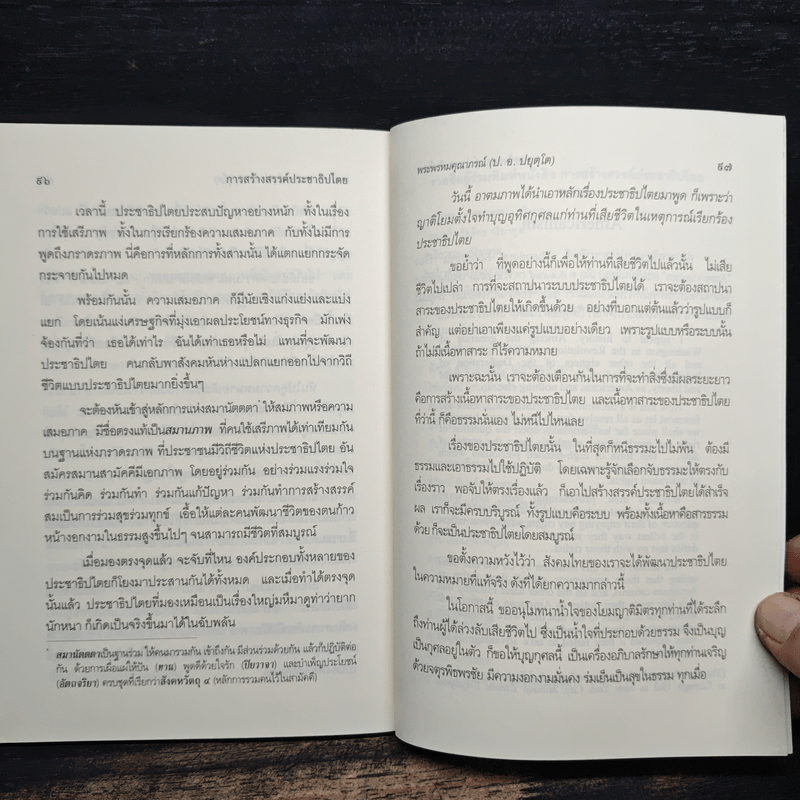 ๙๖ การสร้างสรรค์ประชาธิปไตย
เวลานี้ ประชาธิปไตยประสบปัญหาอย่างหนัก ทั้งในเรื่อง
การใช้เสรีภาพ ทั้งในการเรียกร้องความเสมอภาค กับทั้งไม่มีการ
พูดถึงภราดรภาพ นี่คือการที่หลักการทั้งสามนั้น ได้แตกแยกกระจัด
กระจายกันไปหมด
พร้อมกันนั้น ความเสมอภาค ก็มีนัยเชิงแก่งแย่งและแบ่ง
แยก โดยเน้นแง่เศรษฐกิจที่มุ่งเอาผลประโยชน์ทางธุรกิจ มักเพ่ง
จ้องกันที่ว่า เธอได้เท่าไร ฉันได้เท่าเธอหรือไม่ แทนที่จะพัฒนา
ประชาธิปไตย คนกลับพาสังคมหันห่างแปลกแยกออกไปจากวิถี
ชีวิตแบบประชาธิปไตยมากยิ่งขึ้นๆ
จะต้องหันเข้าสู่หลักการแห่งสมานัตตตา* ให้สมภาพหรือความ
เสมอภาค มีชื่อตรงแท้เป็นสมานภาพ ที่คนใช้เสรีภาพได้เท่าเทียมกัน
บนฐานแห่งภราดรภาพ ที่ประชาชนมีวิถีชีวิตแห่งประชาธิปไตย อัน
สมัครสมานสามัคคีมีเอกภาพ โดยอยู่ร่วมกัน อย่างร่วมแรงร่วมใจ
ร่วมกันคิด ร่วมกันทำ ร่วมกันแก้ปัญหา ร่วมกันทำการสร้างสรรค์
สมเป็นการร่วมสุขร่วมทุกข์ เอื้อให้แต่ละคนพัฒนาชีวิตของตนก้าว
หน้างอกงามในธรรมสูงขึ้นไปๆ จนสามารถมีชีวิตที่สมบูรณ์
เมื่อมองตรงจุดแล้ว จะจับที่ไหน องค์ประกอบทั้งหลายของ
ประชาธิปไตยก็โยงมาประสานกันได้ทั้งหมด และเมื่อทำได้ตรงจุด
นั้นแล้ว ประชาธิปไตยที่มองเหมือนเป็นเรื่องใหญ่มหึมาดูท่าว่ายาก
นักหนา ก็เกิดเป็นจริงขึ้นมาได้ในฉับพลัน
* สมานัตตตาเป็นฐานร่วม ให้คนเข้าถึงกัน มีส่วนร่วมด้วยกัน แล้วก็ปฏิบัติต่อ
กัน ด้วยการเผื่อแผ่ให้ปัน (ทาน) พูดดีด้วยใจรัก (ปิยวาจา) และบำเพ็ญประโยชน์
(อัตถจริยา) ครบชุดที่เรียกว่าสังคหวัตถุ ๔ (หลักการรวมคนไว้ในสามัคคี)
พระพรหมคุณาภรณ์ (ป. อ. ปยุตฺโต) ๙๗
วันนี้ อาตมภาพได้นำเอาหลักเรื่องประชาธิปไตยมาพูด ก็เพราะว่า
ญาติโยมตั้งใจทำบุญอุทิศกุศลแก่ท่านที่เสียชีวิตในเหตุการณ์เรียกร้อง
ประชาธิปไตย
ขอย้ำว่า ที่พูดอย่างนี้ก็เพื่อให้ท่านที่เสียชีวิตไปแล้วนั้น ไม่เสีย
ชีวิตไปเปล่า การที่จะสถาปนาระบบประชาธิปไตยได้ เราจะต้องสถาปนา
สาระของประชาธิปไตยให้เกิดขึ้นด้วย อย่างที่บอกแต่ต้นแล้วว่ารูปแบบก็
สำคัญ แต่อย่าเอาเพียงแค่รูปแบบอย่างเดียว เพราะรูปแบบหรือระบบนั้น
ถ้าไม่มีเนื้อหาสาระ ก็ไร้ความหมาย
เพราะฉะนั้น เราจะต้องเตือนกันในการที่จะทำสิ่งซึ่งมีผลระยะยาว
คือการสร้างเนื้อหาสาระของประชาธิปไตย และเนื้อหาสาระของประชาธิปไตย
ที่ว่านี้ ก็คือธรรมนั่นเอง ไม่หนีไปไหนเลย
เรื่องของประชาธิปไตยนั้น ในที่สุดก็หนีธรรมะไปไม่พ้น ต้องมี
ธรรมและเอาธรรมไปใช้ปฏิบัติ โดยเฉพาะรู้จักเลือกจับธรรมะให้ตรงกับ
เรื่องราว พอจับให้ตรงเรื่องแล้ว ก็เอาไปสร้างสรรค์ประชาธิปไตยได้สำเร็จ
ผล เราก็จะมีครบบริบูรณ์ ทั้งรูปแบบคือระบบ พร้อมทั้งเนื้อหาคือสารธรรม
ด้วย ก็จะเป็นประชาธิปไตยโดยสมบูรณ์
ขอตั้งความหวังไว้ว่า สังคมไทยของเราจะได้พัฒนาประชาธิปไตย
ในความหมายที่แท้จริง ดังที่ได้ยกความมากล่าวนี้
ในโอกาสนี้ ขออนุโมทนาน้ำใจของโยมญาติมิตรทุกท่านที่ได้ระลึก
ถึงท่านผู้ได้ล่วงลับเสียชีวิตไป ซึ่งเป็นน้ำใจที่ประกอบด้วยธรรม จึงเป็นบุญ
เป็นกุศลอยู่ในตัว ก็ขอให้บุญกุศลนี้ เป็นเครื่องอภิบาลรักษาให้ทุกท่านเจริญ
ด้วยจตุรพิธพรชัย มีความงอกงามมั่นคง ร่มเย็นเป็นสุขในธรรม ทุกเมื่อ